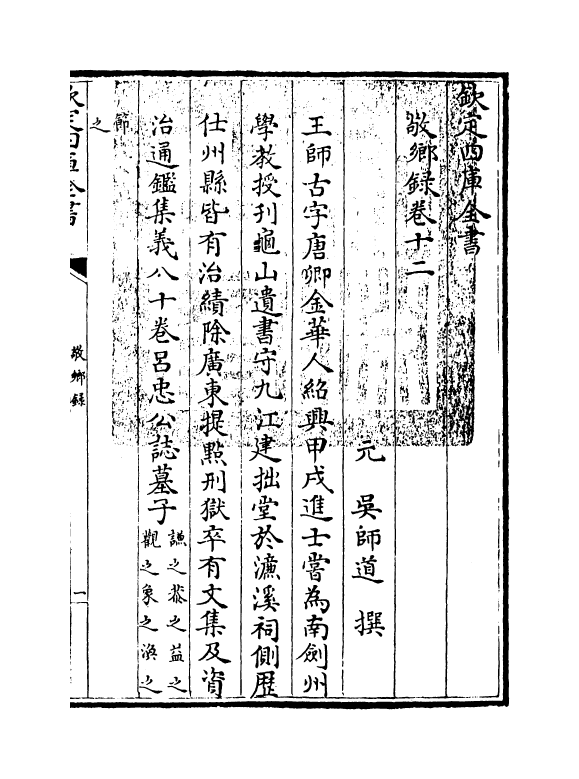 欽定四庫全書
敬鄉録卷十二
元　吳師道　撰
王師古字唐卿金華人紹興甲戌進士嘗為南劍州
學教授刋龜山遺書守九江建拙堂於濓溪祠側歴
仕州縣皆有治績除廣東提㸃刑獄卒有文集及資
治通鑑集義八十卷呂忠公誌墓子
謙之恭之益之
觀之象之渙之
節
之
欽定四庫全書
敬鄉錄
一